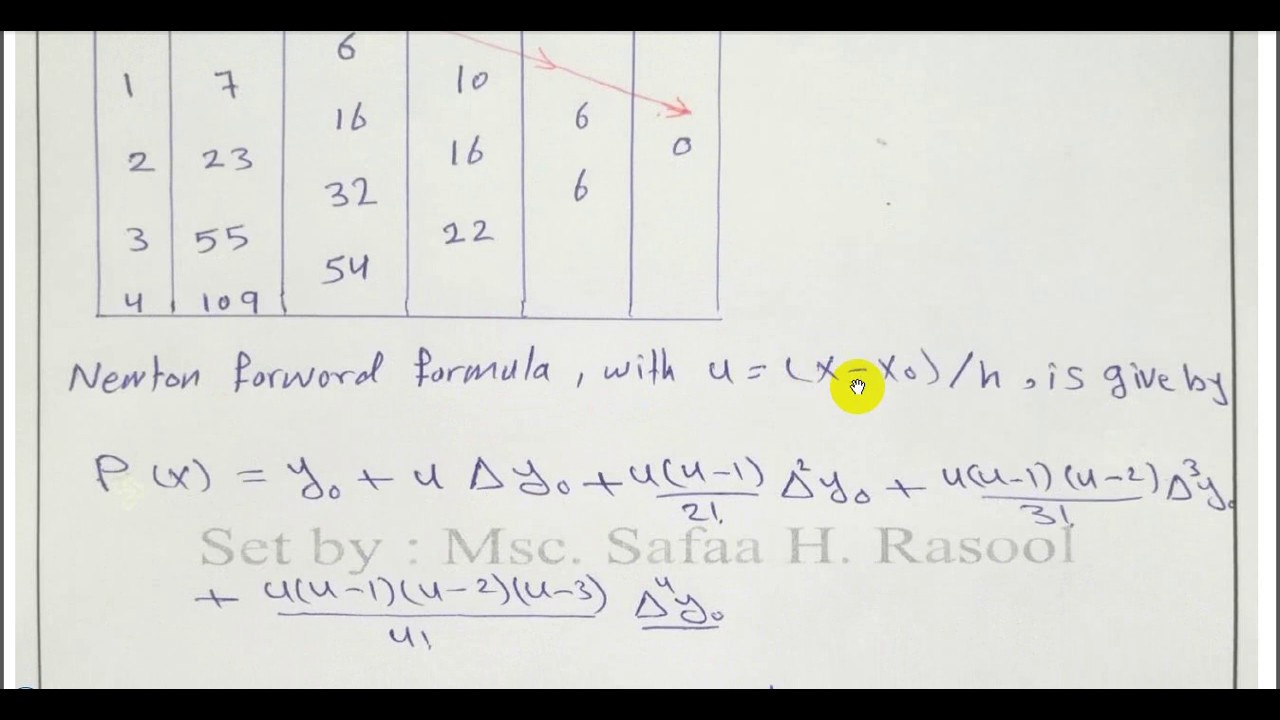 6
1 7 10
16 6
2 23 16 0
32 6
3 55 22
54
4 109
Newton forword formula, with u = (x - x₀)/h, is give by
P(x) = y₀ + u Δy₀ + u(u-1)/2! Δ²y₀ + u(u-1)(u-2)/3! Δ³y₀
Set by : Msc. Safaa H. Rasool
+ u(u-1)(u-2)(u-3)/4! Δ⁴y₀